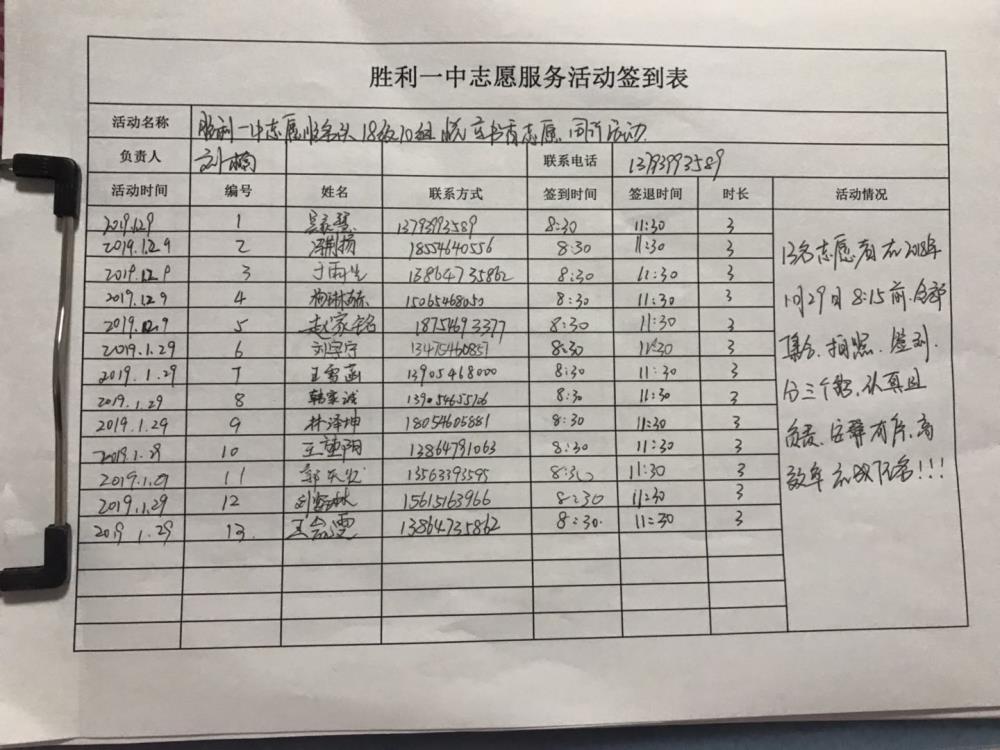 胜利一中志愿服务活动签到表
活动名称 胜利一中志愿服务队18级10组 悦 书香志愿 同行活动
负责人 刘楠 联系电话 13793993589
活动时间 编号 姓名 联系方式 签到时间 签退时间 时长 活动情况
2019.1.29 1 13793993589 8:30 11:30 3
2019.1.2.9 2 18554640556 8:30 11:30 3
2019.12.9 3 于雨生 13864735862 8:30 11:30 3
2019.12.9 4 杨琳赫 15065468050 8:30 11:30 3
2019.12.9 5 赵家铭 18754693377 8:30 11:30 3
2019.1.29 6 刘宗宁 13475460857 8:30 11:30 3
2019.1.29 7 王雪菡 13905468000 8:30 11:30 3
2019.1.29 8 韩家诚 13905465526 8:30 11:30 3
2019.1.29 9 林泽坤 18054605881 8:30 11:30 3
2019.1.29 10 王堃阳 13864791063 8:30 11:30 3
2019.1.29 11 郭天 13563393595 8:30 11:30 3
2019.1.29 12 刘 林 15615163966 8:30 11:30 3
2019.1.29 13. 王会雯 13864735862 8:30. 11:30 3
13名志愿者在2018年
1月29日8:15前.全部
集合、拍照、签到.
分三个部,认真且
负责、安静有序、高
效率 !!!